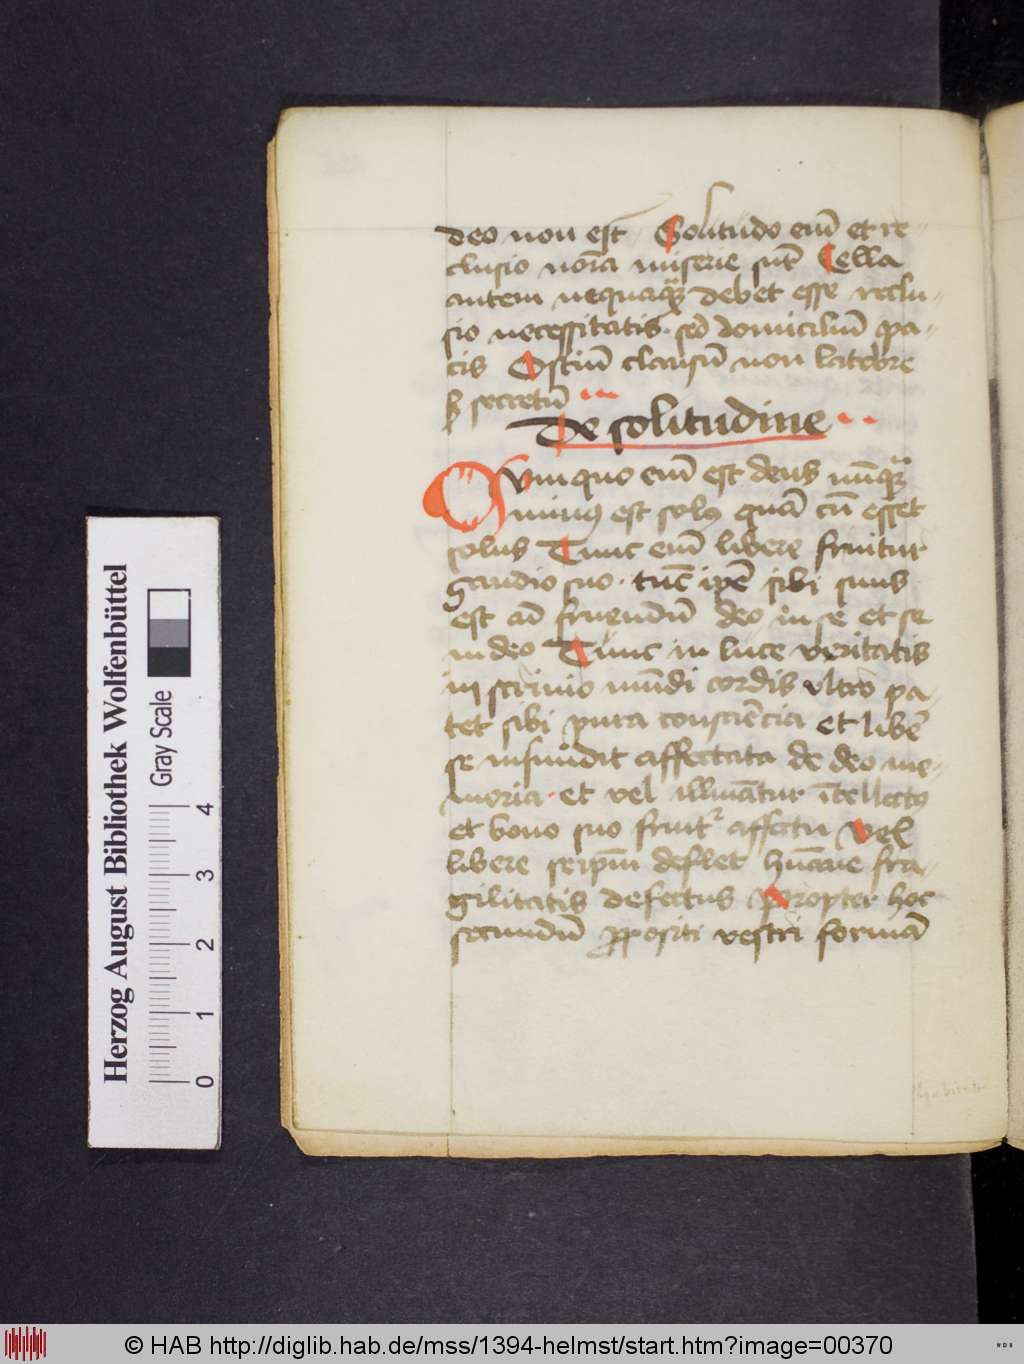 deo non est Solitudo em̄ et re-
clusio nōia miserie sūt Cella
autem nequaqꝫ debet esse reclu-
sio necessitatis. sed domiciliū pa-
cis Ostiū clausū non latebre
sꝫ secretū
De solitudine
Cum quo em̄ est deus nūqꝫ
minꝰ est solꝰ quā cū esset
solus Tunc em̄ libere fruitur
gaudio suo. tūc ip̄e sibi suus
est ad fruendū deo in se et se
in deo Tunc in luce veritatis
in scrinio mūdi cordis ultro pa-
tet sibi pura consciēcia et libē
se infundit affectata de deo me-
moria. et vel illuīatur ītellectꝰ
et bono suo fruit᷑ affectu vel
libere seipm̄ deflet hūane fra-
gilitatis defectus Propter hoc
secundū ꝓpositi vestri formā
Herzog August Bibliothek Wolfenbüttel
Gray Scale
0 1 2 3 4
© HAB http://diglib.hab.de/mss/1394-helmst/start.htm?image=00370